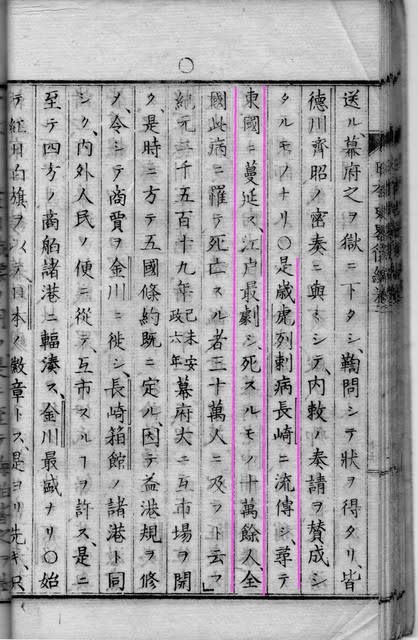 送ル、幕府之ヲ獄ニ下タシ、鞫問シテ狀ヲ得タリ、皆
德川齊昭ノ密奏ニ與ミシテ、內敕ノ奏請ヲ贊成シ
タルモノナリ○是歲虎列剌病長崎ニ流傳シ、尋テ
東國ニ蔓延ス、江戶最劇シ、死スルモノ十萬餘人、全
國此病ニ罹テ死亡スル者三十萬人ニ及フト云フ」
紀元二千五百十九年己未安政六年幕府大ニ互市場ヲ開
ク、是時ニ方テ五國條約旣ニ定ル、因テ益港規ヲ修
メ、令シテ商賈ヲ金川ニ徙シ、長崎箱館ノ諸港ト同
シク、內外人民ノ便ニ從テ、互市スルヿヲ許ス、是ニ
至テ四方ノ商舶諸港ニ輻湊ス、金川最盛ナリ○始
テ紅日白旗ヲ以テ、日本ノ徽章トス、是ヨリ先キ、只